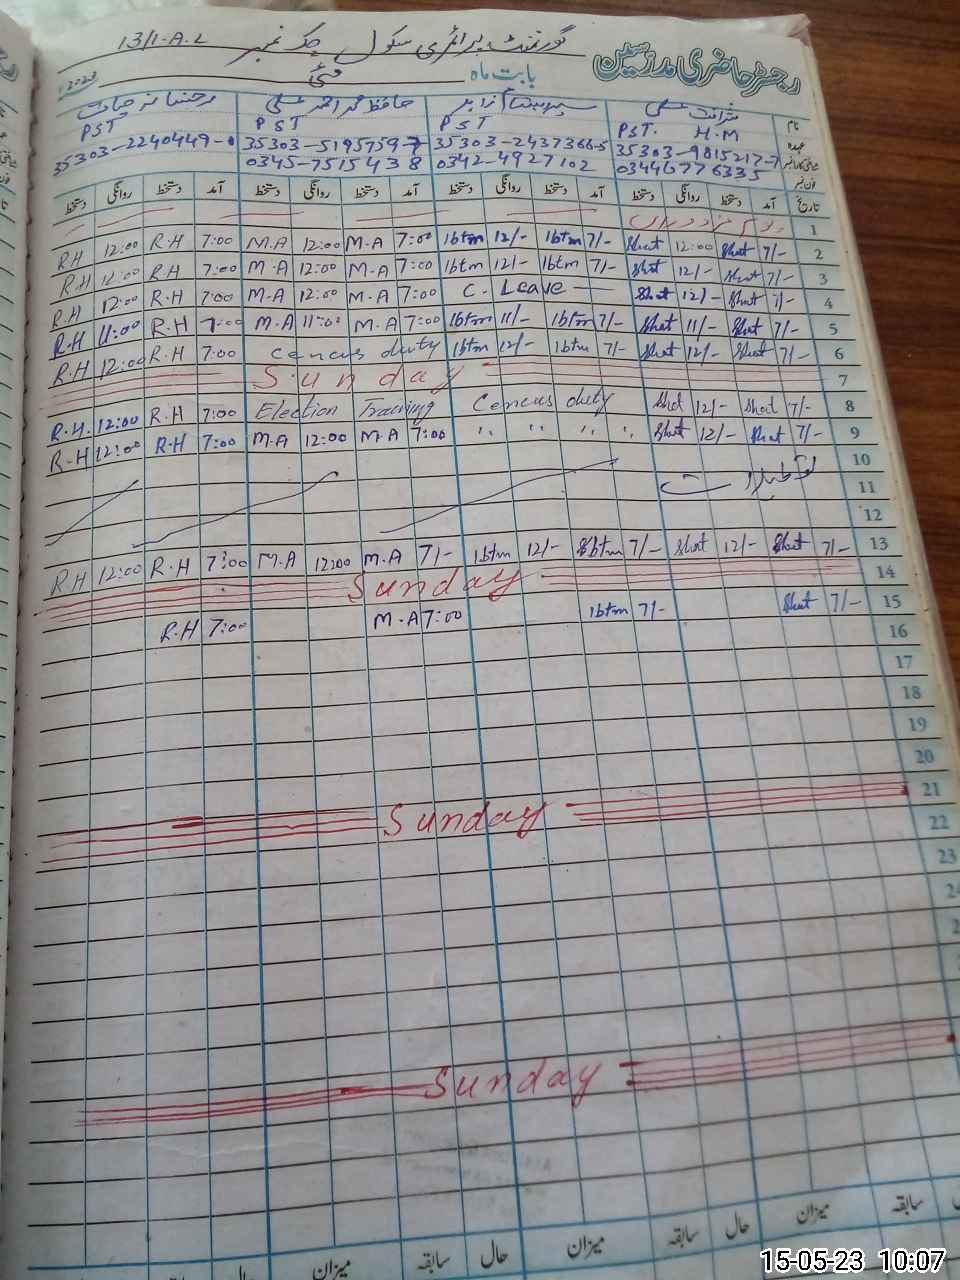 رجسٹر حاضری مدرسین
گورنمنٹ پرائمری سکول چک نمبر 13/1-A.L
بابت ماہ مئی 2023
نام شرافت علی حافظ محمد احمد علی
عہدہ PST. H.M PST PST PST
35303-9815217-7 35303-2437366-5 35303-5195759-7 35303-2240449-0
فون نمبر 03446776335 0342-4927102 0345-7515438
تاریخ آمد دستخط روانگی دستخط آمد دستخط روانگی دستخط آمد دستخط روانگی دستخط آمد دستخط روانگی دستخط
1
RH 12:00 R.H 7:00 M.A 12:00 M.A 7:00 Ibtm 12/- Ibtm 7/- Shat 12:00 Shat 7/- 2
RH 12:00 RH 7:00 M.A 12:00 M.A 7:00 Ibtm 12/- Ibtm 7/- Shat 12/- Shat 7/- 3
RH 12:00 RH 7:00 M.A 12:00 M.A 7:00 C. Leave Shat 12/- Shat 7/- 4
R.H 11:00 R.H 7:00 M.A 11:00 M.A 7:00 Ibtm 11/- Ibtm 7/- Shat 11/- Shat 7/- 5
R.H 12:00 R.H 7:00 Cencus duty Ibtm 12/- Ibtm 7/- Shat 12/- Shat 7/- 6
Sunday 7
R.H. 12:00 R.H 7:00 Election Training Cencus duty Shat 12/- Shat 7/- 8
R-H 12:00 R.H 7:00 M.A 12:00 M.A 7:00 " " " " Shat 12/- Shat 7/- 9
10
تعطیلات 11
12
RH 12:00 R.H 7:00 M.A 12:00 M.A 7/- Ibtm 12/- Ibtm 7/- Shat 12/- Shat 7/- 13
Sunday 14
R.H 7:00 M.A 7:00 Ibtm 7/- Shat 7/- 15
16
17
18
19
20
Sunday 21
22
23
Sunday
سابقہ میزان حال سابقہ میزان حال سابقہ میزان حال
15-05-23 10:07